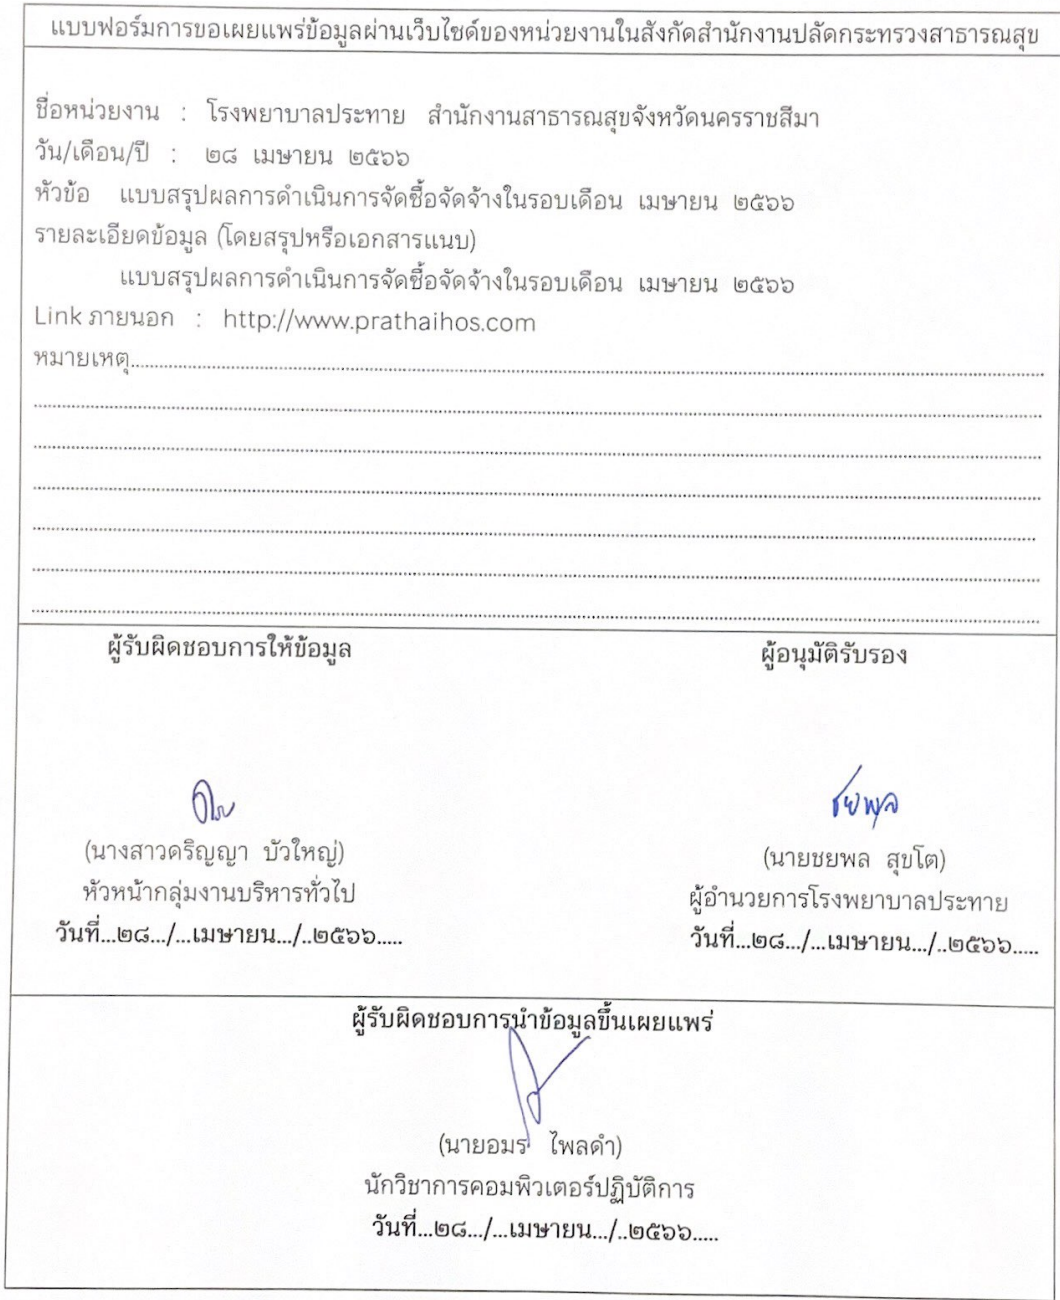 แบบฟอร์มการขอเผยแพร่ข้อมูลผ่านเว็บไซด์ของหน่วยงานในสังกัดสำนักงานปลัดกระทรวงสาธารณสุข
ชื่อหน่วยงาน : โรงพยาบาลประทาย สำนักงานสาธารณสุขจังหวัดนครราชสีมา
วัน/เดือน/ปี : ๒๘ เมษายน ๒๕๖๖
หัวข้อ แบบสรุปผลการดำเนินการจัดซื้อจัดจ้างในรอบเดือน เมษายน ๒๕๖๖
รายละเอียดข้อมูล (โดยสรุปหรือเอกสารแนบ)
แบบสรุปผลการดำเนินการจัดซื้อจัดจ้างในรอบเดือน เมษายน ๒๕๖๖
Link ภายนอก : http://www.prathaihos.com
หมายเหตุ
ผู้รับผิดชอบการให้ข้อมูล
ผู้อนุมัติรับรอง
ชยพล
(นางสาวดริญญา บัวใหญ่)
(นายชยพล สุขโต)
หัวหน้ากลุ่มงานบริหารทั่วไป
ผู้อำนวยการโรงพยาบาลประทาย
วันที่...๒๘.../...เมษายน.../..๒๕๖๖.....
วันที่...๒๘.../...เมษายน.../..๒๕๖๖.....
ผู้รับผิดชอบการนำข้อมูลขึ้นเผยแพร่
(นายอมร ไพลดำ)
นักวิชาการคอมพิวเตอร์ปฏิบัติการ
วันที่...๒๘.../...เมษายน.../..๒๕๖๖.....